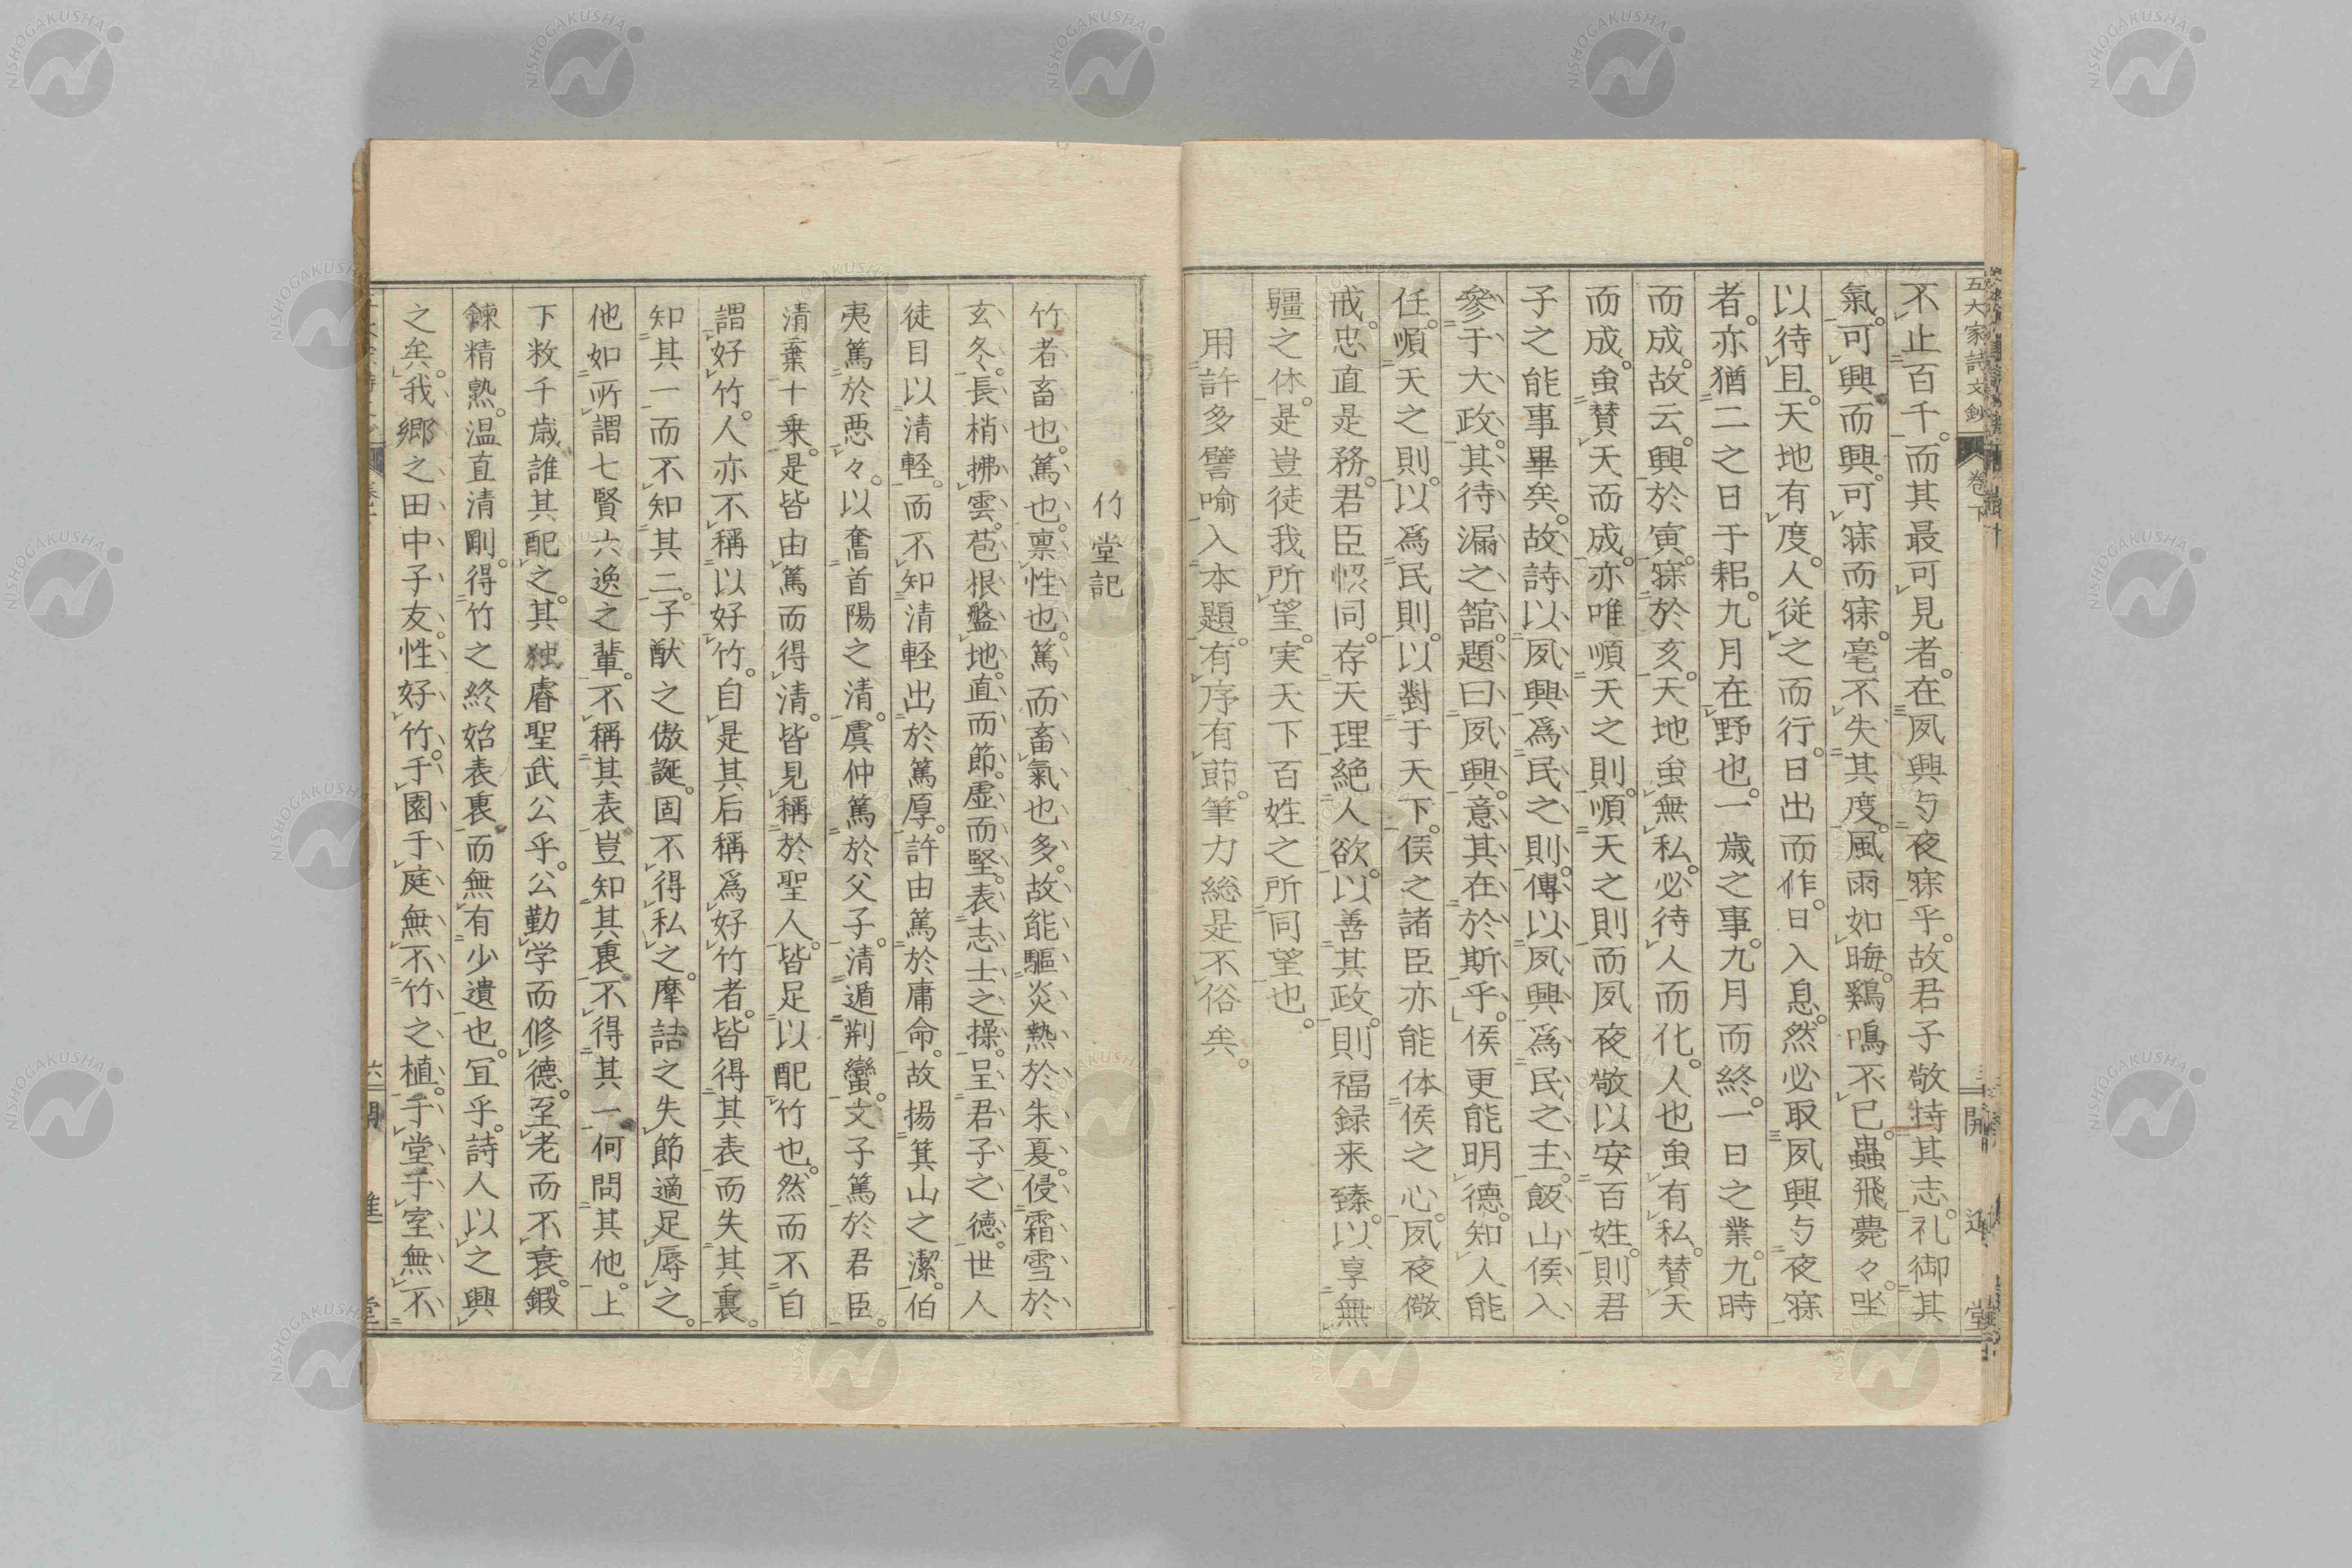 五大家詩文鈔 卷下
不止百千。而其最可見者。在夙興与夜寐乎。故君子敬持其志。礼御其
氣。可興而興。可寐而寐。毫不失其度。風雨如晦。鷄鳴不已。蟲飛薨々。坐
以待旦。天地有度。人從之而行。日出而作。日入息。然必取夙興与夜寐
者。亦猶二之日于耜。九月在野也。一歳之事。九月而終。一日之業。九時
而成。故云。興於寅。寐於亥。天地虽無私。必待人而化。人也虽有私。賛天
而成。虽賛天而成。亦唯順天之則。順天之則而夙夜敬以安百姓。則君
子之能事畢矣。故詩以夙興爲民之則。傳以夙興爲民之主。飯山侯入
參于大政。其待漏之舘。題曰夙興。意其在於斯乎。侯更能明德。知人能
任。順天之則。以爲民則。以對于天下。侯之諸臣亦能体侯之心。夙夜儆
戒。忠直是務。君臣恊同。存天理絶人欲。以善其政。則福録来臻。以享無
疆之休。是豈徒我所望。実天下百姓之所同望也。
用許多譬喻入本題。有序有節。筆力総是不俗矣。
竹堂記
竹者畜也。篤也。禀性也。篤而畜氣也多。故能驅炎熱於朱夏。侵霜雪於
玄冬。長梢拂雲。苞根盤地。直而節。虚而堅。表志士之操。呈君子之徳。世人
徒目以清軽。而不知清軽出於篤厚。許由篤於庸命。故揚箕山之潔。伯
夷篤於悪々。以奮首陽之清。虞仲篤於父子。清遁荆蠻。文子篤於君臣。
清棄十乗。是皆由篤而得清。皆見稱於聖人。皆足以配竹也。然而不自
謂好竹。人亦不稱以好竹。自是其后稱爲好竹者。皆得其表而失其裏。
知其一而不知其二。子猷之傲誕。固不得私之。摩詰之失節適足辱之。
他如所謂七賢六逸之輩。不稱其表豈知其裏不得其一何問其他。上
下数千歳誰其配之。其独睿聖武公乎。公勤学而修德。至老而不衰。鍛
鍊精熟。温直清剛。得竹之終始表裏而無有少遺也。冝乎。詩人以之興
之矣。我郷之田中子友。性好竹。于園于庭無不竹之植。于堂于室無不